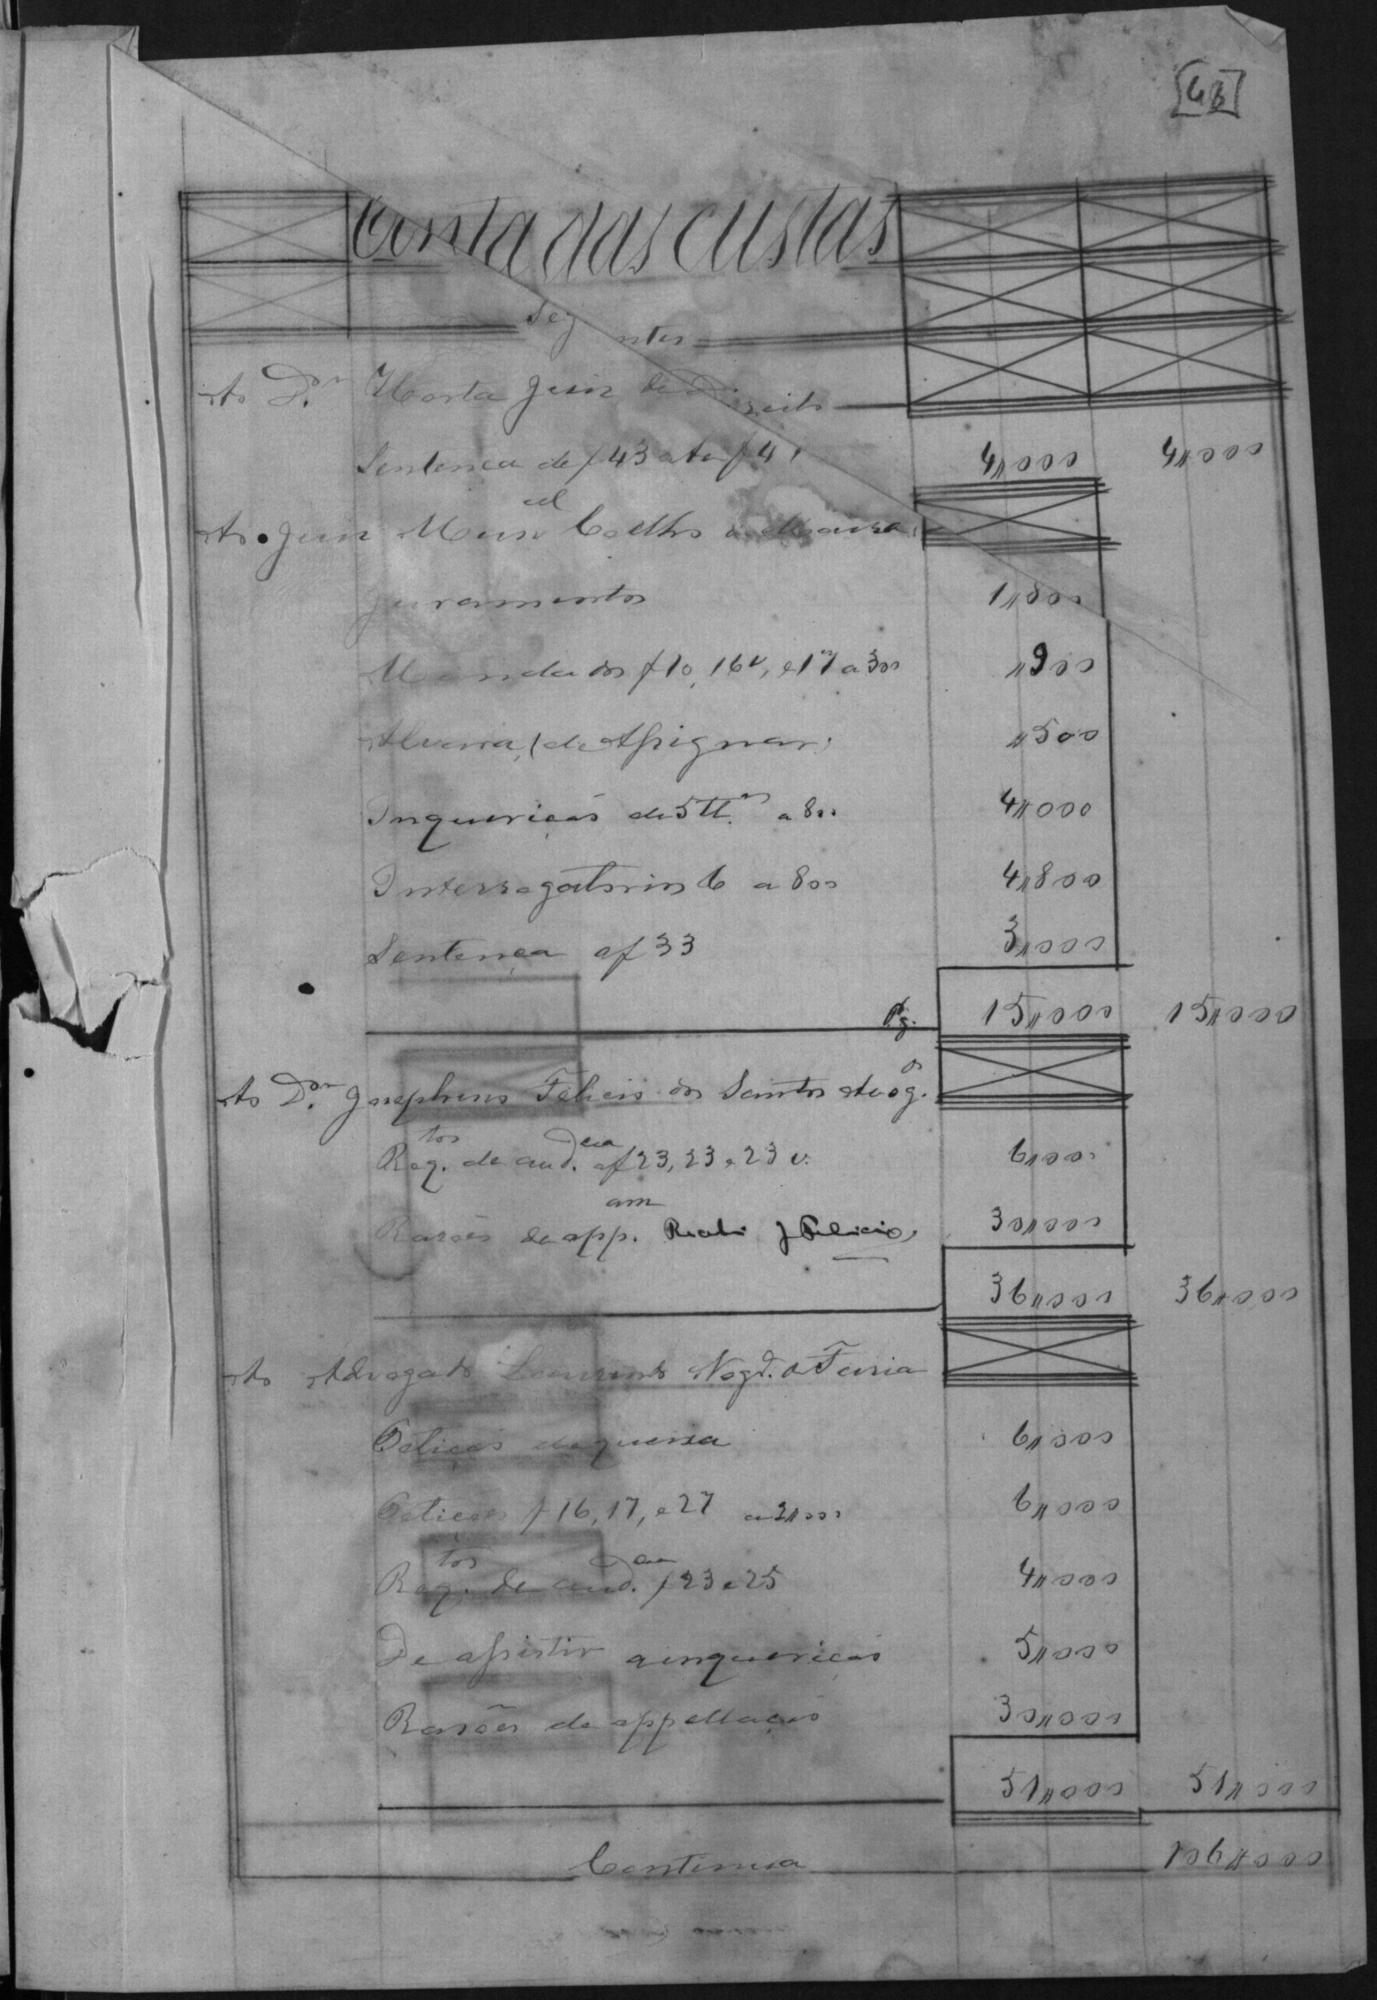 [48]
Conta das custas
Seguntes
Ao D.or Horta Juis de Direito
Sentença de f 43 ate f 4 4,,000 4,,000
Ao Juis Mun.cel Coelho de Moura
Juramentos 1,,800
Mandados f 10, 16v, e 17 a 300 ,,900
Alvara, (de Assignar) ,,500
Inquerição de 5 tt.as a 800 4,,000
Interrogatorios 6 a 800 4,,800
Sentença af 33 3,,000
Pg. 15,,000 15,,000
Ao D.or Josephino Felicio dos Santos Avog.o
Req.tos de aud.cia af 23, 23 e 23 v. 6,,000
Rasões de app.am Recebi J Felicio 30,,000
36,,000 36,,000
Ao Advogado Lourenço Nogr.a Faria
Petição de queixa 6,,000
Petições f 16, 17, e 27 a 2,,000 6,,000
Req.tos de aud.cia f 23 e 25 4,,000
De assistir a inquerição 5,,000
Rasões de appellação 30,,000
51,,000 51,,000
Continua 106,,000